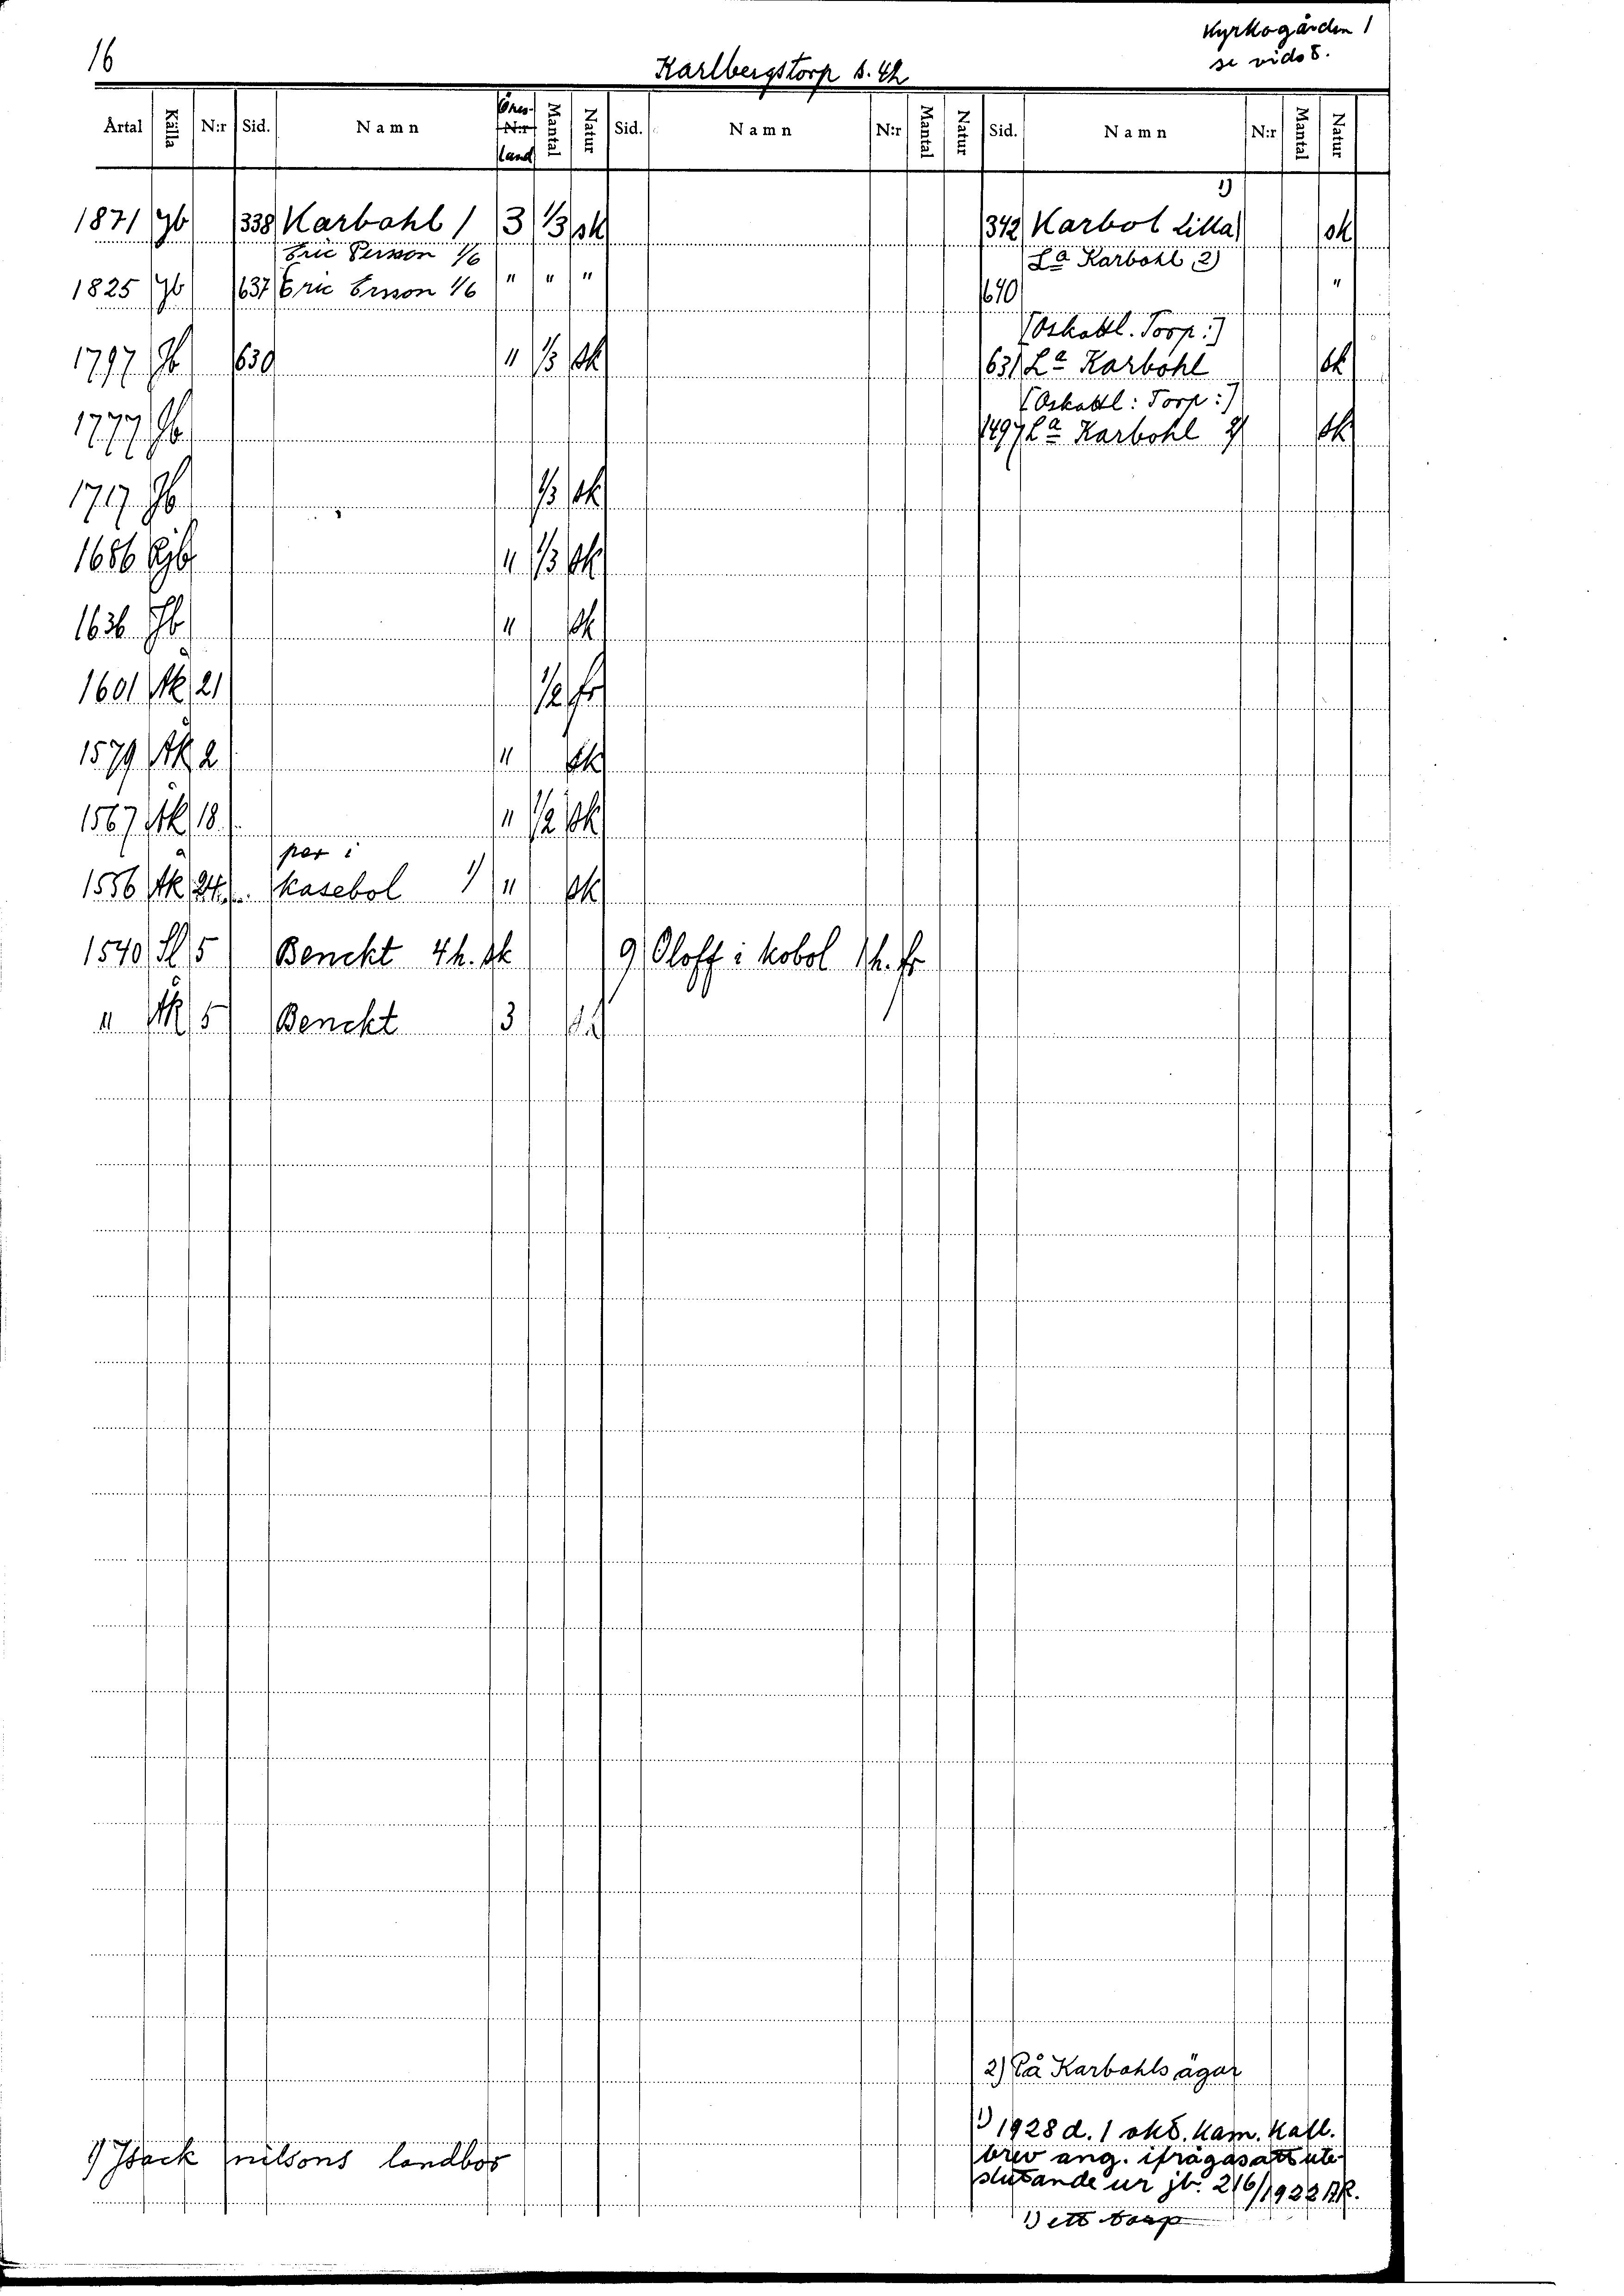 16
Karlbergstorp s. 42
Kyrkogården 1
se vids 8.
Årtal Källa N:r Sid. Namn Öres- N:r land Mantal Natur Sid. Namn N:r Mantal Natur Sid. Namn N:r Mantal Natur
1)
1871 Jb 338 Karbohl 1 3 1/3 sk 342 Karbol Lilla sk
Eric Person 1/6 La Karbohl 2)
1825 Jb 637 Eric Ersson 1/6 " " " 640 "
[Oskattl. Torp:]
1797 Jb 630 " 1/3 sk 631 La Karbohl sk
[Oskattl: Torp:]
1777 Jb 1497 La Karbohl 2) sk
1717 Jb 1/3 sk
1686 Jb " 1/3 sk
1636 Jb " sk
1601 Åk 21 1/2 fr
1579 Åk 2 " sk
1567 Åk 18 " 1/2 sk
per i
1556 Åk 24 kasebol 1) " sk
1540 Sl 5 Benckt 4 h. sk 9 Oloff i kobol 1 h. fr
" Åk 5 Benckt 3 sk
2) På Karbohls ägor
1) 1928 d. 1 okt. Kam. Koll.
brev ang. ifrågasatt ute-
slutande ur jb. 216/1922 AR.
1) Jsack nilsons landbor
1) ett torp